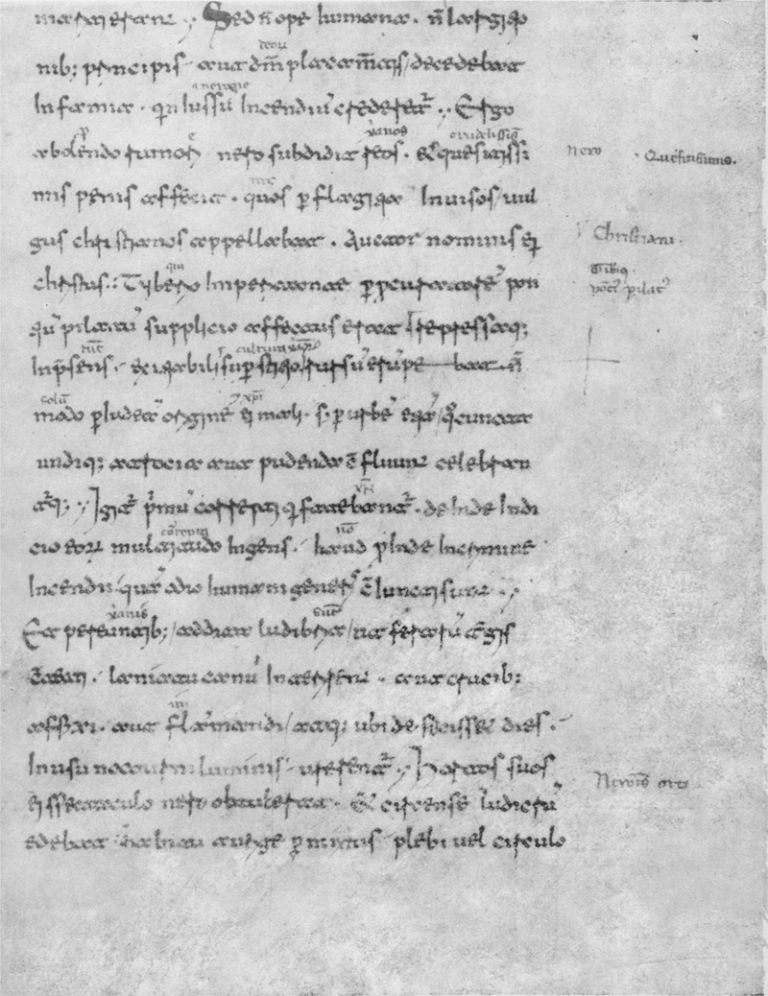 Sed ñ ope humana. ñ largitio
nib; principis aut dm̄ placamtis decedebat
Infamia. qn Iussū Incendiū crederet̄. Ergo
abolendo rumorī nero subdidit reos. & quesitissi
mis penis affecit. quos p flagitia Inuisos uul
gus christianos appellabat. Auctor nominis ei
christus. Tiberio Imperitante p procuratorē pon
tiū pilatū supplicio affectus erat repressaq;
Inp̄sens. exitiabilis supstitio rursū erūpebat. ñ
modo p Iudeā originē ei mali. s; p urbē etiā quo cuncta
undiq; atrocia aut pudenda cōfluunt celebran
turq;. Igit̄ primū correpti qui fatebant̄. deinde Indi
cio eorū multitudo Ingens. haud pinde Incrimine
Incendii quā odio humani generis cōiuncti sunt.
Et pereuntib; addita ludibria. ut ferarū tergis
cōtecti. laniatu canū Interirent. aut crucib;
affixi. aut flāmandi atq; ubi defecisset dies.
Inusū nocturni luminis urerent̄. Hortos suos
ei spectaculo nero obtulerat. & circense ludicrū
edebat habitu aurige pmixtus plebi uel circulo
nero
Christiani.
pont̄ pilat̄